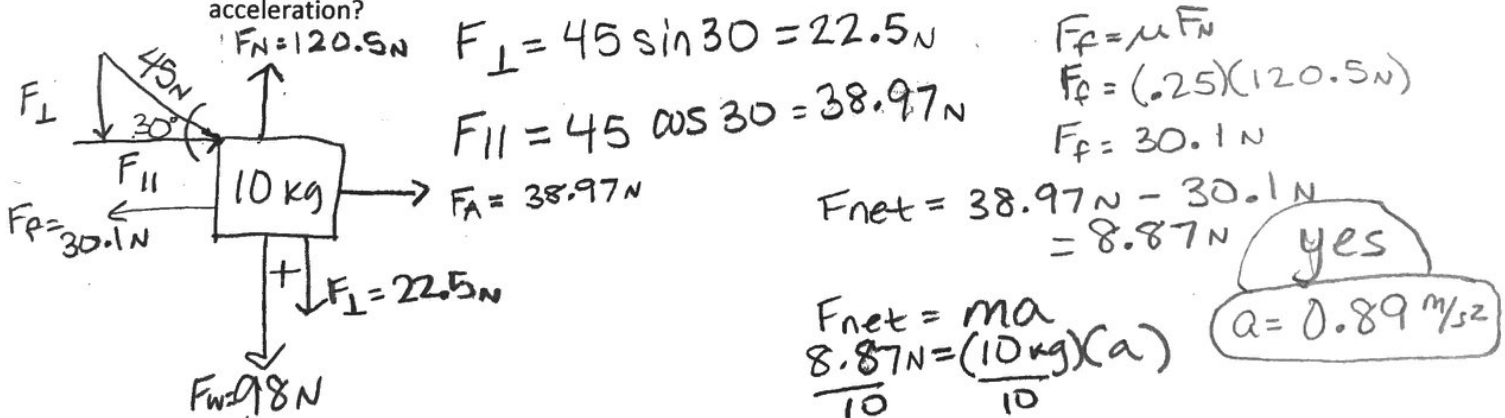 acceleration?
FN=120.5N
45N
F⊥
30°
F||
10 kg
Ff=30.1N
FA = 38.97N
+
F⊥=22.5N
Fw=98N
F⊥ = 45 sin30 = 22.5N
F|| = 45 cos 30 = 38.97N
Ff=μFN
Ff = (.25)(120.5N)
Ff = 30.1N
Fnet = 38.97N - 30.1N
= 8.87N
yes
Fnet = ma
8.87N=(10kg)(a)
10 10
a= 0.89 m/s2